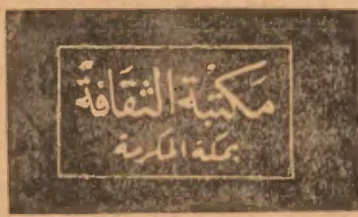 مَكتَبَة الثَقَافَة
بمكة المكرمة